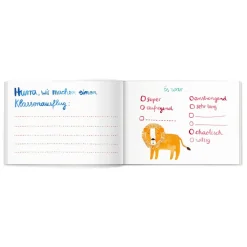 Hurra, wir machen einen
Klassenausflug:
Es war
super
aufregend
anstrengend
sehr lang
chaotisch
lustig